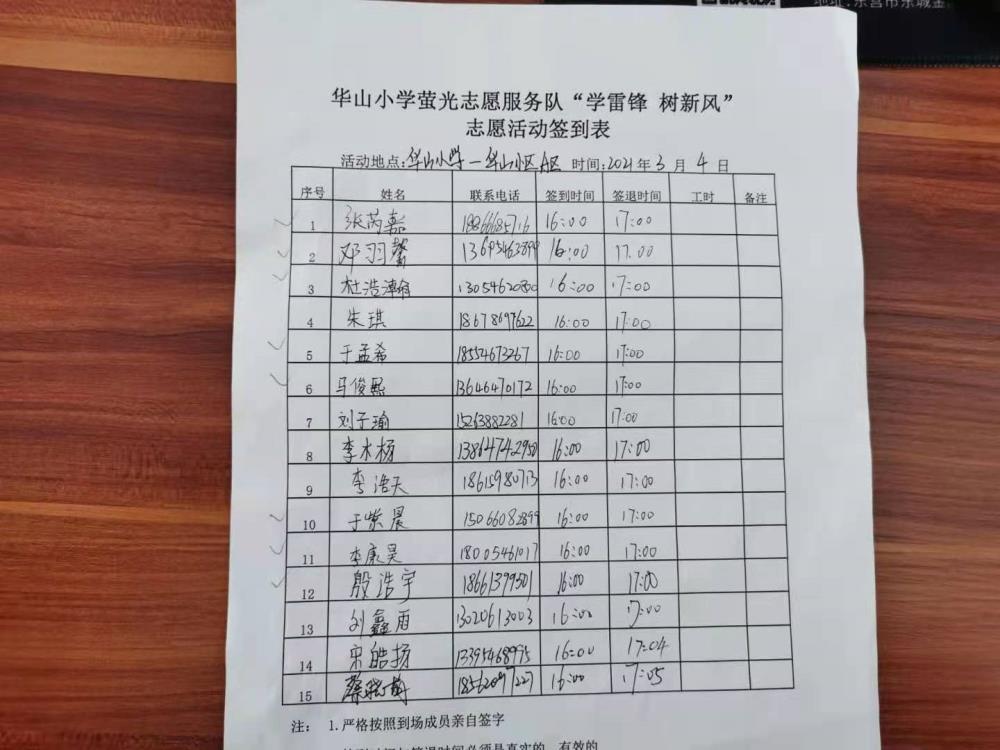 地址:东营市东城金
华山小学萤光志愿服务队“学雷锋 树新风”
志愿活动签到表
活动地点:华山小学－华山小区A区 时间:2021年3月4日
序号 姓名 联系电话 签到时间 签退时间 工时 备注
1 张芮嘉 18866685716 16:00 17:00
2 邓羽馨 13695463899 16:00 17:00
3 杜浩瀚 13054620800 16:00 17:00
4 朱琪 18678697622 16:00 17:00
5 于孟希 18554673267 16:00 17:00
6 马俊熙 13646470172 16:00 17:00
7 刘子瑜 15263882281 16:00 17:00
8 李木杨 13864742950 16:00 17:00
9 李浩天 18615980713 16:00 17:00
10 于紫晨 15066082899 16:00 17:00
11 李康昊 18005461017 16:00 17:00
12 殷浩宇 18661399501 16:00 17:00
13 刘鑫雨 13020613003 16:00 17:00
14 宋皓扬 13395468995 16:00 17:04
15 18562097227 16:00 17:05
注： 1.严格按照到场成员亲自签字